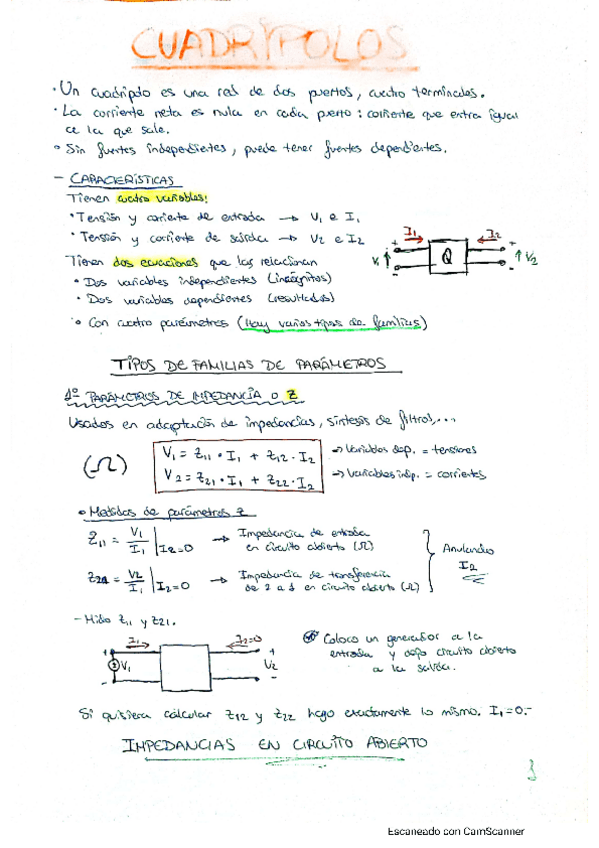 CUADRIPOLOS
· Un cuadripolo es una red de dos puertos, cuatro terminales.
· La corriente neta es nula en cada puerto: corriente que entra igual
a la que sale.
· Sin fuentes independientes, puede tener fuentes dependientes.
- CARACTERÍSTICAS
Tienen cuatro variables:
· Tensión y corriente de entrada → V1 e I1
· Tensión y corriente de salida → V2 e I2
I1 I2
+ +
V1 Q V2
- -
Tienen dos ecuaciones que las relacionan
· Dos variables independientes (incógnitas)
· Dos variables dependientes (resultados)
· Con cuatro parámetros (Hay varios tipos de familias)
TIPOS DE FAMILIAS DE PARÁMETROS
1º PARÁMETROS DE IMPEDANCIA O Z
Usados en adaptación de impedancias, síntesis de filtros,...
(Ω)
V1 = Z11 · I1 + Z12 · I2 → Variables dep. = tensiones
V2 = Z21 · I1 + Z22 · I2 → Variables indp. = corrientes
· Medidas de parámetros Z
Z11 = V1/I1 | I2=0 → Impedancia de entrada
en circuito abierto (Ω)
Z21 = V2/I1 | I2=0 → Impedancia de transferencia
de 2 a 1 en circuito abierto (Ω)
Anulando
I2
- Mido Z11 y Z21.
I1 I2=0
+ +
V1 V2
- -
Coloco un generador a la
entrada y dejo circuito abierto
a la salida.
Si quisiera calcular Z12 y Z22 hago exactamente lo mismo. I1=0.-
IMPEDANCIAS EN CIRCUITO ABIERTO
3
Escaneado con CamScanner